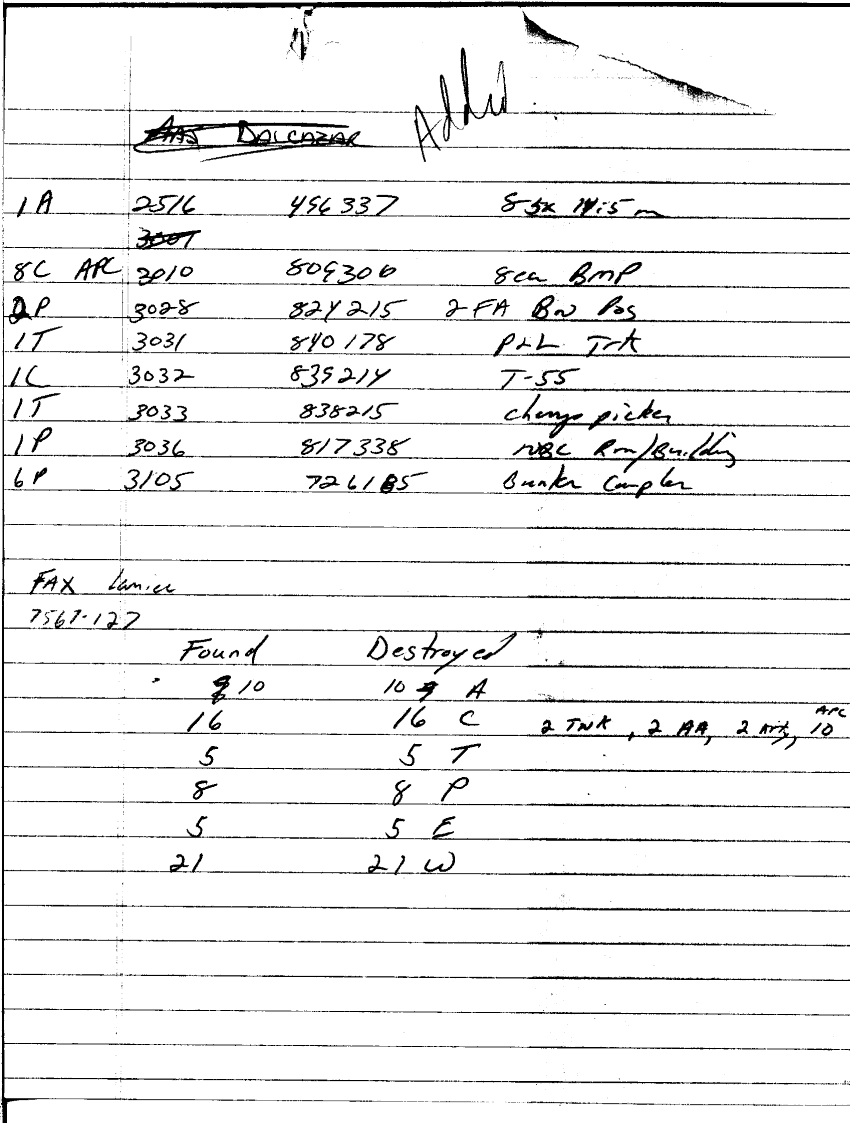 Added
DALCAZAR
1A 2516 496337
3007
8C APC 3010 809300 8 ea BMP
2P 3028 824215 2 FA Bn Pos
1T 3031 840178 PLL Trk
1C 3032 839214 T-55
1T 3033 838215 cherry picker
1P 3036 817338 NBC Rm/Building
6P 3105 726185 Bunker Complex
FAX Lanier
7567-127
Found Destroyed
10 10 A
16 16 C 2 TNK, 2 AA, 2 Arty, 10 APC
5 5 T
8 8 P
5 5 E
21 21 W